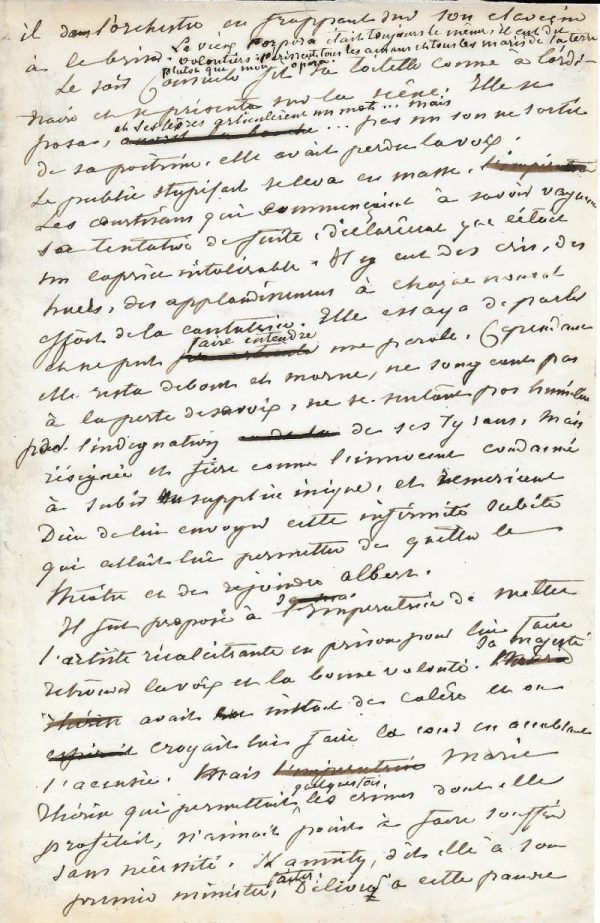 il dans l'orchestre en frappant sur son clavecin
à le briser. Le vieux Porpora était toujours le même. il eut dit
volontiers: périssent tous les amans et tous les maris de la terre
plutôt que mon opéra!
Le soir Consuelo fit sa toilette comme à l'ordi-
naire et se présenta sur la scène. Elle se
posa, et ses lèvres articulèrent un mot... mais
... pas un son ne sortit
de sa poitrine, elle avait perdu la voix.
Le public stupéfait se leva en masse. l'impératrice
Les courtisans qui commençaient à savoir vaguement
sa tentative de fuite, déclarèrent que c'était
un caprice intolérable. Il y eut des cris, des
huées, des applaudissemens à chaque nouvel
effort de la cantatrice. Elle essaya de parler
et ne put faire entendre une parole. Cependant
elle resta debout et morne, ne songeant pas
à la perte de sa voix, ne se sentant pas humiliée
par l'indignation de ses tyrans, mais
résignée et fière comme l'innocent condamné
à subir un supplice inique, et remerciant
Dieu de lui envoyer cette infirmité subite
qui allait lui permettre de quitter le
théâtre et de rejoindre Albert.
Il fut proposé à l'impératrice de mettre
l'artiste récalcitrante en prison pour lui faire
retrouver la voix et la bonne volonté. Sa majesté
avait un instant de colère et on
croyait lui faire la cour en accablant
l'accusée. Mais l'impératrice Marie
Thérèse qui permettait quelquefois les crimes dont elle
profitait, n'aimait point à faire souffrir
sans nécessité. Kaunitz, dit-elle à son
premier ministre, faites délivrer à cette pauvre